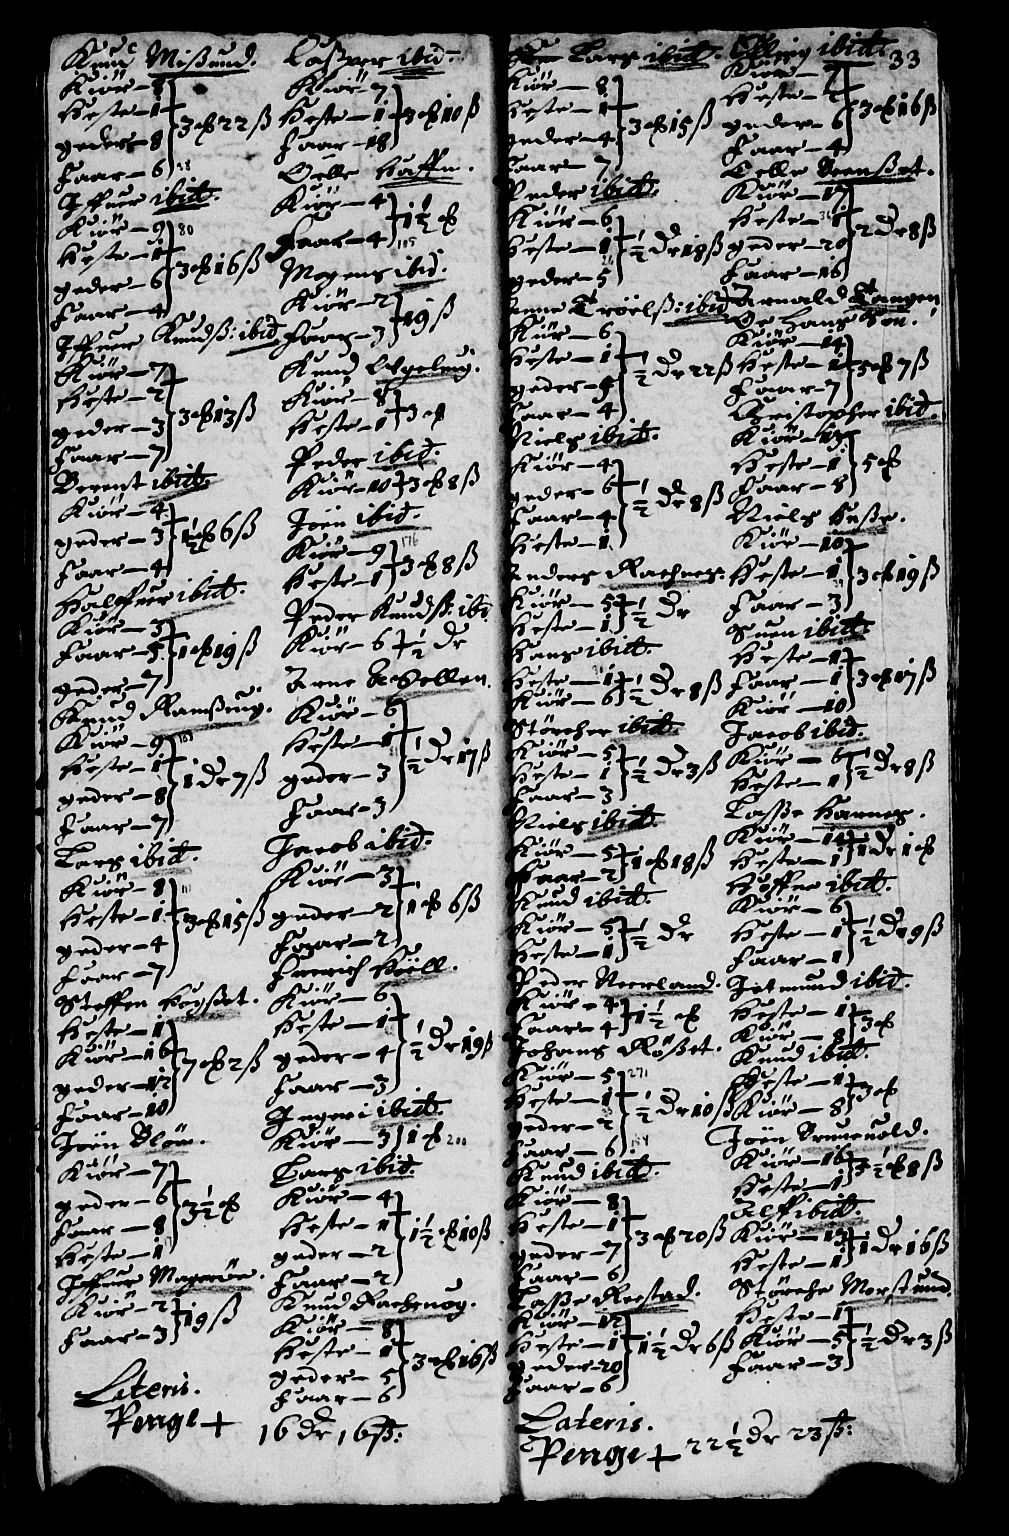 Knud Mißund.
Kiör - 8
Heste - 1
geder - 8
Faar - 6
3 ꝶ 22 ß
Iffuer ibid.
Kiör - 9
Heste - 1
geder - 6
Faar - 4
3 ꝶ 16 ß
Iffuer Knudß: ibid
Kiör - 7
Heste - 2
geder - 3
Faar - 7
3 ꝶ 13 ß
Berent ibid.
Kiör - 4
geder - 3
Faar - 4
1½ ꝶ 6 ß
Halffuer ibid.
Kiör - 3
Faar - 5
geder - 7
1 ꝶ 19 ß
Knud Ramßuig.
Kiör - 9
Heste - 1
geder - 8
Faar - 7
1 Dr 7 ß
Lars ibid.
Kiör - 8
Heste - 1
geder - 4
Faar - 7
3 ꝶ 15 ß
Steffen Høyßet.
Heste - 1
Kiör - 16
geder - 12
Faar - 10
7 ꝶ 2 ß
Joën Bløm.
Kiör - 7
geder - 6
Faar - 8
Heste - 1
3½ ꝶ
Iffuer Magerøe.
Kiör - 2
Faar - 3
19 ß
Lateris.
Penge +
16 Dr 16 ß:
Caßper ibid.
Kiör - 7
Heste - 1
Faar - 18
3 ꝶ 10 ß
Oelle Haffn.
Kiör - 4
Faar - 4
1½ ꝶ
Mogens ibid.
Kiör - 2
Faar - 3
19 ß
Knud
Kiör - 8
Heste - 1
3 ꝶ
Peder ibid.
Kiör - 10
3 ꝶ 8 ß
Joën ibid.
Kiör - 9
Heste - 1
3 ꝶ 8 ß
Peder Knudß: ibi
Kiör - 6
½ Dr
Arne
Kiör - 6
Heste - 1
geder - 3
Faar - 3
½ Dr 17 ß
Jacob ibid.
Kiör - 3
geder - 2
Faar - 2
1 ꝶ 6 ß
Høell.
Kiör - 6
Heste - 1
geder - 4
Faar - 3
½ Dr 19 ß
Ingeri ibid.
Kiör - 3
1 ꝶ
Lars ibid.
Kiör - 4
Heste - 1
geder - 2
Faar - 2
1½ ꝶ 10 ß
Knud Rachenog.
Kiör - 8
Heste - 1
geder - 5
Faar - 6
3 ꝶ 16 ß
33
Lars ibid.
Kiör - 8
Heste - 1
geder - 4
Faar - 7
3 ꝶ 15 ß
Peder ibid.
Kiör - 6
Heste - 1
geder - 5
½ Dr 18 ß
Anne Troëlß: ibid
Kiör - 6
Heste - 1
geder - 8
Faar - 4
½ Dr 22 ß
Niels ibid.
Kiör - 4
geder - 6
Faar - 4
Heste - 1
½ Dr 8 ß
Anders
Kiör - 5
Heste - 1
½ Dr
Hans ibid.
Heste - 1
Kiör - 6
½ Dr 8 ß
Størcher ibid.
Kiör - 5
Heste - 1
Faar - 3
½ Dr 3 ß
Niels ibid.
Kiör - 5
Faar - 2
1 ꝶ 18 ß
Knud ibid.
Kiör - 5
Heste - 1
½ Dr
Peder Neerland.
Kiör - 4
Faar - 4
1½ ꝶ
Johans Røßet.
Kiör - 5
Heste - 1
geder - 2
Faar - 6
½ Dr 10 ß
Knud ibid.
Kiör - 8
Heste - 1
geder - 7
Faar - 6
3 ꝶ 20 ß
Laße Reestad.
Kiör - 12
Heste - 1
geder - 20
Faar - 6
1½ Dr 6 ß
Lateris.
Penge + 22½ Dr 23 ß:
ibid.
Kiör - 7
Heste - 1
geder - 6
Faar - 4
3 ꝶ 16 ß
Kiör - 17
Heste - 1
geder - 20
Faar - 16
2 Dr 8 ß
Arnald Tangen
Kiör - 14
Heste - 1
Faar - 7
5 ꝶ 7 ß
Christopher ibid.
Kiör - 13
Heste - 1
Faar - 8
5 ꝶ
Niels Huße.
Kiör - 10
Heste - 1
Faar - 3
3 ꝶ 19 ß
Suen ibid.
Heste - 1
Faar - 1
Kiör - 10
3 ꝶ 17 ß
Jacob ibid.
Kiör - 6
Heste - 1
½ Dr 8 ß
Laße Harnes.
Kiör - 14
Heste - 1
1 Dr 1 ꝶ
ibid.
Kiör - 6
Heste - 1
Faar - 1
½ Dr 9 ß
Jetmund ibid.
Heste - 1
Kiör - 8
3 ꝶ
Knud ibid.
Heste - 1
Kiör - 8
3 ꝶ
Joën
Kiör - 16
Heste - 1
5½ ꝶ 8 ß
ibid.
Kiör - 13
Heste - 1
1 Dr 16 ß
Størche Morstund.
Heste - 1
Kiör - 5
Faar - 3
½ Dr 3 ß